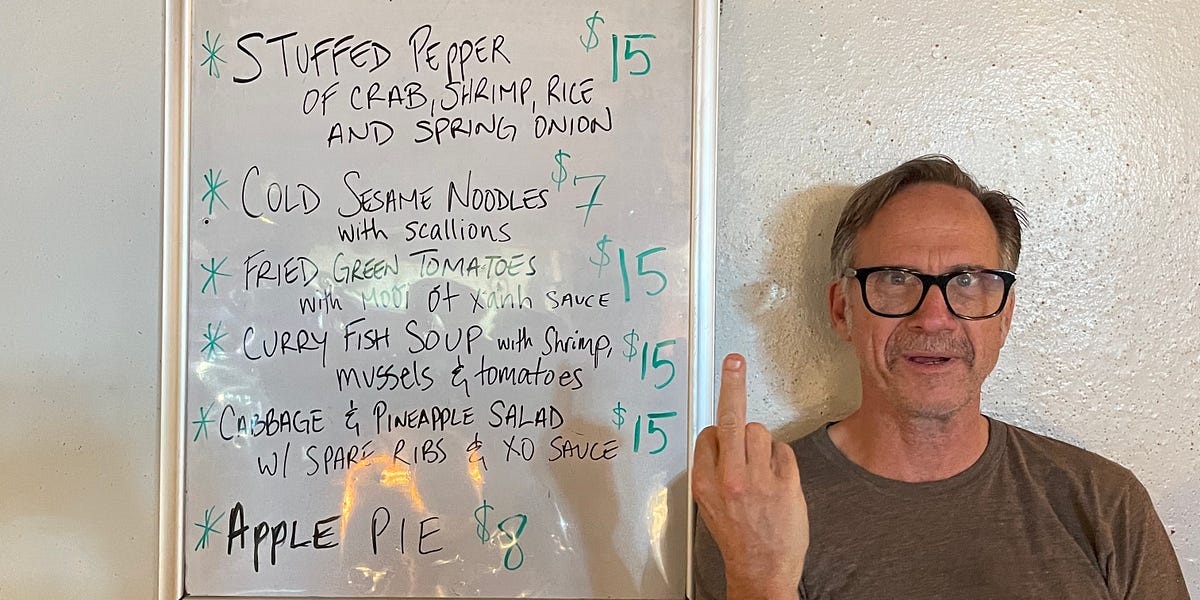 * STUFFED PEPPER $15
OF CRAB, SHRIMP, RICE
AND SPRING ONION
* COLD SESAME NOODLES $7
with scallions
* FRIED GREEN TOMATOES $15
with MUỐI ỚT XANH SAUCE
* CURRY FISH SOUP with Shrimp, $15
mussels & tomatoes
* CABBAGE & PINEAPPLE SALAD $15
W/ SPARE RIBS & XO SAUCE
* APPLE PIE $8